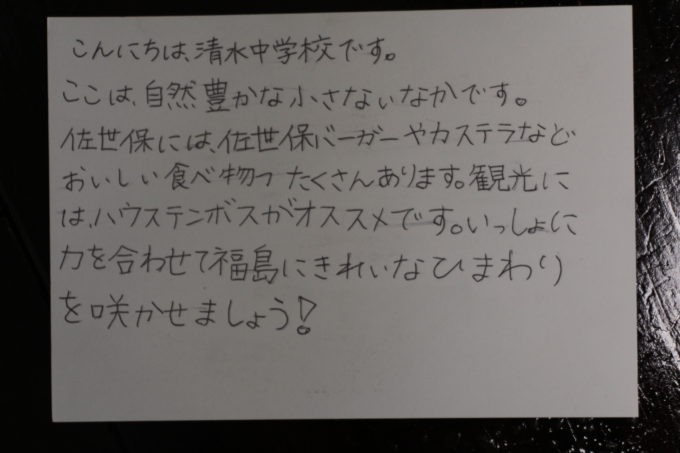 こんにちは、清水中学校です。
ここは、自然豊かな小さないなかです。
佐世保には、佐世保バーガーやカステラなど
おいしい食べ物っ たくさんあります。観光に
は、ハウステンボスがオススメです。いっしょに
力を合わせて福島にきれいなひまわり
を咲かせましょう!